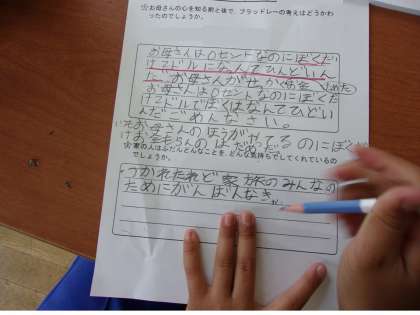 ☆お母さんの心を知る前と後で、ブラッドレーの考えはどうかわ
ったのでしょうか。
お母さんは0セントなのにぼくだ
け2ドルになんてひどいん
だ お母さんが
お母さんは0セントなのにぼくだ
け2ドルでぼくはなんてひどい
んだ ごめんなさい。
お母さんのほうがやってるのにぼくだ
け お金もらうのはだめだ
☆家の人はふだんどんなことを、どんな気持ちでしてくれているの
でしょうか。
つかれたけれど家族のみんなの
ためにがんばんなき